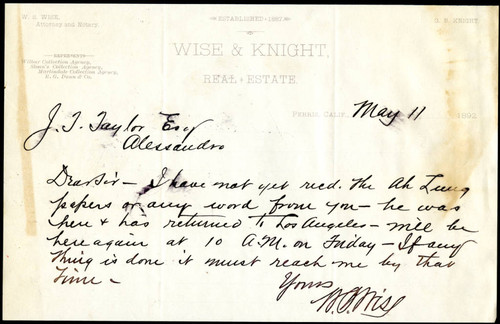 W. S. WISE,
Attorney and Notary
ESTABLISHED 1882
S. B. KNIGHT.
WISE & KNIGHT,
REAL ESTATE.
REFERENCES
Wilber Collection Agency,
Sloan's Collection Agency,
Martindale Collection Agency,
R. G. Dunn & Co.
PERRIS, CALIF., May 11 1892
J. T. Taylor Esq
Alessandro
Dear Sir – I have not yet recd. the Ah Lung
papers or any word from you – he was
here & has returned to Los Angeles – will be
here again at 10 A.M. on Friday – If any
thing is done it must reach me by that
time –
Yours
W. S. Wise